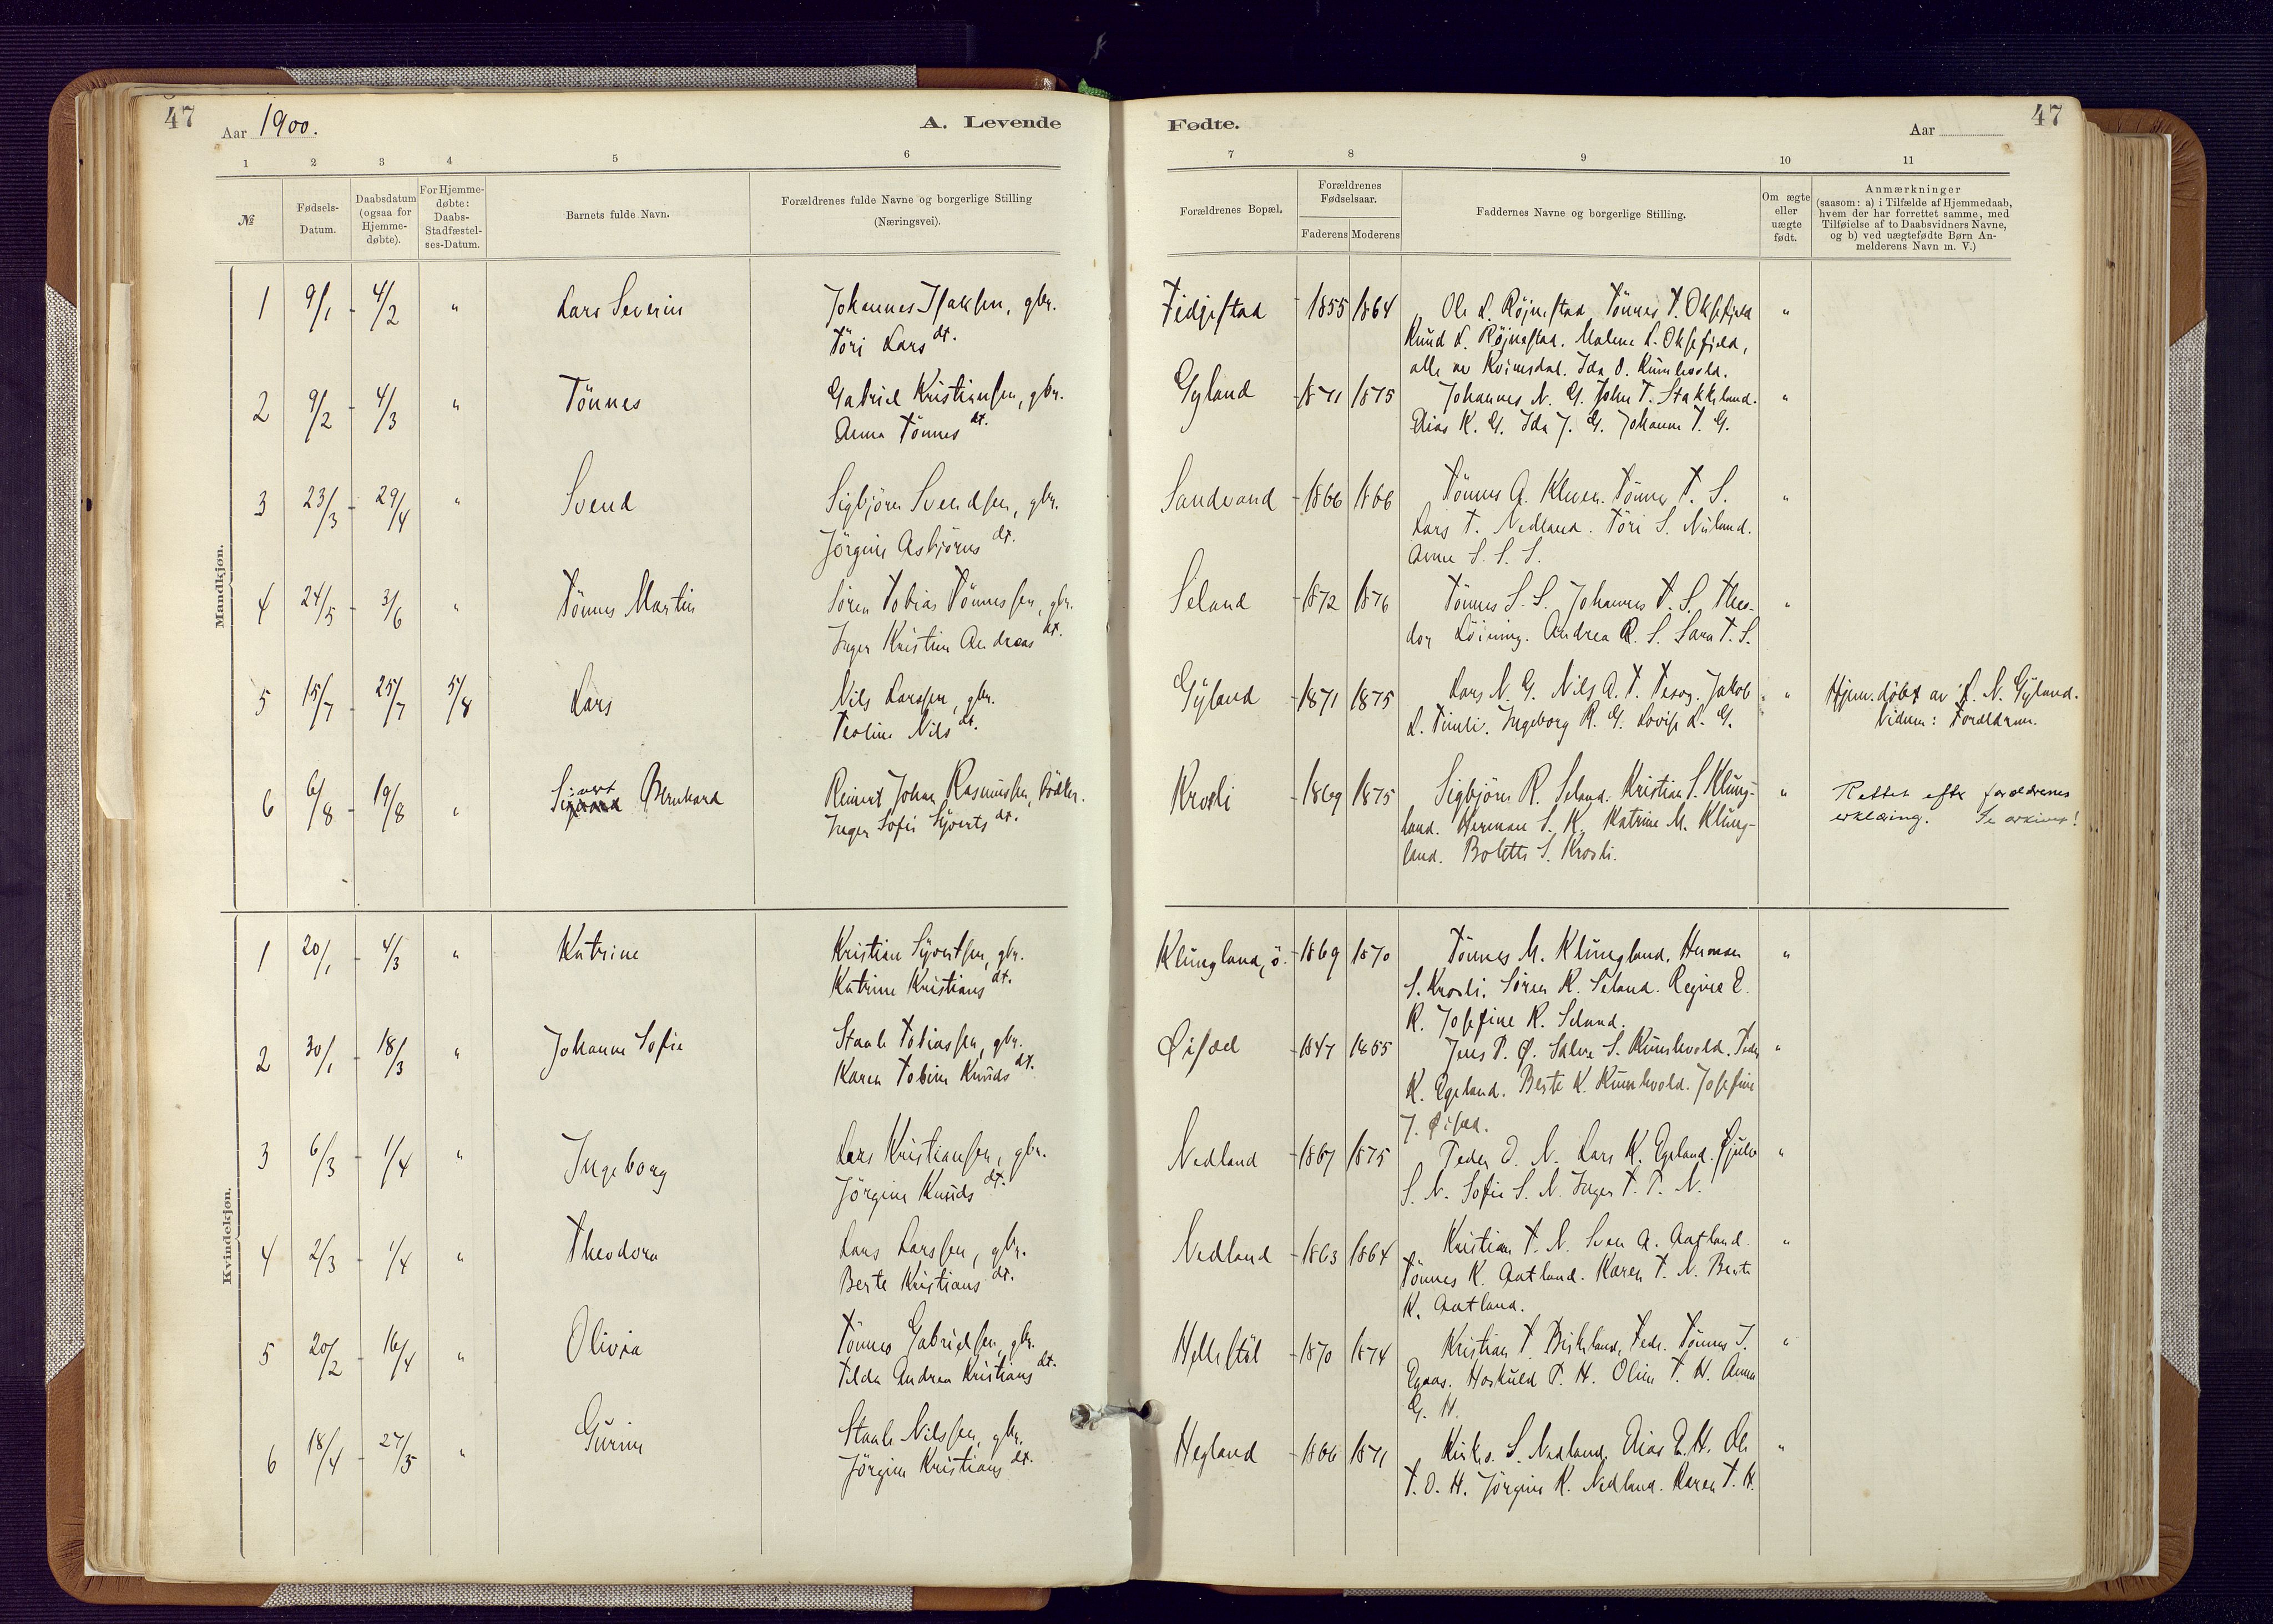 47
Aar 1900.
A. Levende
1 2 3 4 5 6
№
Fødsels-
Datum.
Daabsdatum
(ogsaa for
Hjemme-
døbte).
For Hjemme-
døbte:
Daabs-
Stadfæstel-
ses-Datum.
Barnets fulde Navn.
Forældrenes fulde Navne og borgerlige Stilling
(Næringsvei).
Mandkjøn.
1 9/1 - 4/2 " Lars Severin Johannes Isaksen, gbr.
Töri Lars dt.
2 9/2 - 4/3 " Tönnes Gabriel Kristiansen, gbr.
Anna Tönnes dt.
3 23/3 - 29/4 " Svend Sigbjörn Svendsen, gbr.
Jörgine Asbjörns dt.
4 24/5 - 3/6 " Tönnes Martin Sören Tobias Tönnessen, gbr.
Inger Kristine Andreas dt.
5 15/7 - 25/7 5/8 Lars Nils Larssen, gbr.
Teoline Nils dt.
6 6/8 - 19/8 " Sivert Bernhard Reinert Johan Rasmussen, Bödker.
Inger Sofie Sjverts dt.
Kvindekjøn.
1 20/1 - 4/3 " Katrine Kristian Syvertsen, gbr.
Katrine Kristians dt.
2 30/1 - 18/3 " Johanne Sofie Staale Tobiassen, gbr.
Karen Tobine Knuds dt.
3 6/3 - 1/4 " Ingeborg Lars Kristiansen, gbr.
Jörgine Knuds dt.
4 2/3 - 1/4 " Theodora Lars Larssen, gbr.
Berte Kristians dt.
5 20/2 - 16/4 " Olivia Tönnes Gabrielsen, gbr.
Tilda Andrea Kristians dt.
6 18/4 - 27/5 " Gurine Staale Nilssen, gbr.
Jörgine Kristians dt.
Fødte.
Aar
47
7 8 9 10 11
Forældrenes Bopæl.
Forældrenes
Fødselsaar.
Faderens Moderens
Faddernes Navne og borgerlige Stilling.
Om ægte
eller
uægte
født.
Anmærkninger
(saasom: a) i Tilfælde af Hjemmedaab,
hvem der har forrettet samme, med
Tilføielse af to Daabsvidners Navne,
og b) ved uægtefødte Børn An-
melderens Navn m. V.)
Fidjestad - 1855 1864 Ole L. Röjnestad Tönnes T. Oksefjeld "
Knud L. Röjnestad. Malene L. Oksefjeld,
alle av Kvinesdal. Ida O. Kumlevold.
Gyland - 1871 1875 Johannes N. G. John T. Stakkeland. "
Elias K. G. Ida J. G. Johanne T. G.
Sandvand - 1866 1866 Tönnes A. Kleven. Tönnes T. S. "
Lars T. Nedland. Töri S. Nuland.
Anne S. S. S.
Seland - 1872 1876 Tönnes S. S. Johannes T. S. Theo- "
dor Löining. Andrea R. S. Sara T. S.
Gyland - 1871 1875 Lars N. G. Nils A. T. Jakob "
L. Tinnli. Ingeborg R. G. Lovise L. G.
Hjem. döbt av L. N. Gyland.
Vidner: Foreldrene.
Krosli - 1869 1875 Sigbjörn R. Seland. Kristian S. Klung- "
land. Herman S. K. Katrine M. Klung-
land. Bolette S. Krosli.
Rettet efter foreldrenes
erklæring. Se arkivet!
Klungland, ö. - 1869 1870 Tönnes M. Klungland. Herman "
S. Krosli. Sören R. Seland. Regine E.
K. Josefine R. Seland.
Øisæd - 1847 1855 Jens P. Ø. Salve S. Kumlevold. Peder "
K. Egeland. Berte K. Kumlevold. Josefine
J. Øisæd.
Nedland - 1867 1875 Peder O. N. Lars K. Egeland. "
S. N. Sofie S. N. Inger T. P. N.
Nedland - 1863 1864 Kristian T. N. Sven A. Aatland. "
Tönnes K. Aatland. Karen T. N. Berte
K. Aatland.
Hellestöl - 1870 1874 Kristian T. Birkeland, Feda. Tönnes J. "
Egaas. Hoskuld P. H. Oline T. H. Anna
G. H.
Hegland - 1866 1871 S. Nedland. Elias E. H. Ole "
T. O. H. Jörgine K. Nedland. Karen T. H.